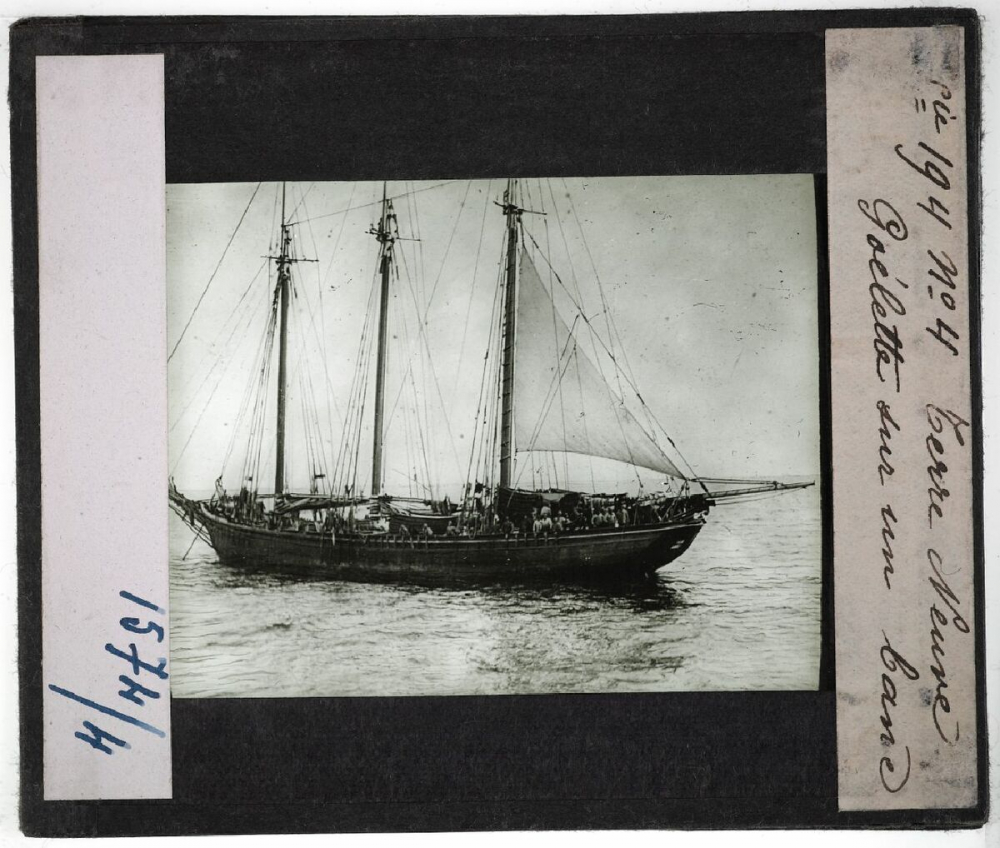 1574/4
rie 194 No 4 Terre Neuve
Goélette sur un banc